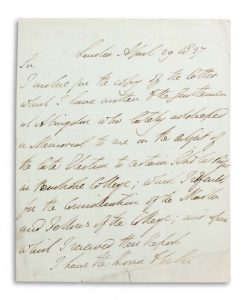 London April 29 1837
Sir
I inclose you the copy of the letter
which I have written to the Gentlemen
at Abingdon who lately addressed
a Memorial to me on the subject of
the late Election to certain
in Pembroke College; which I
for the Consideration of the Master
and Fellows of the College; and upon
which I received their Report
I have the honor